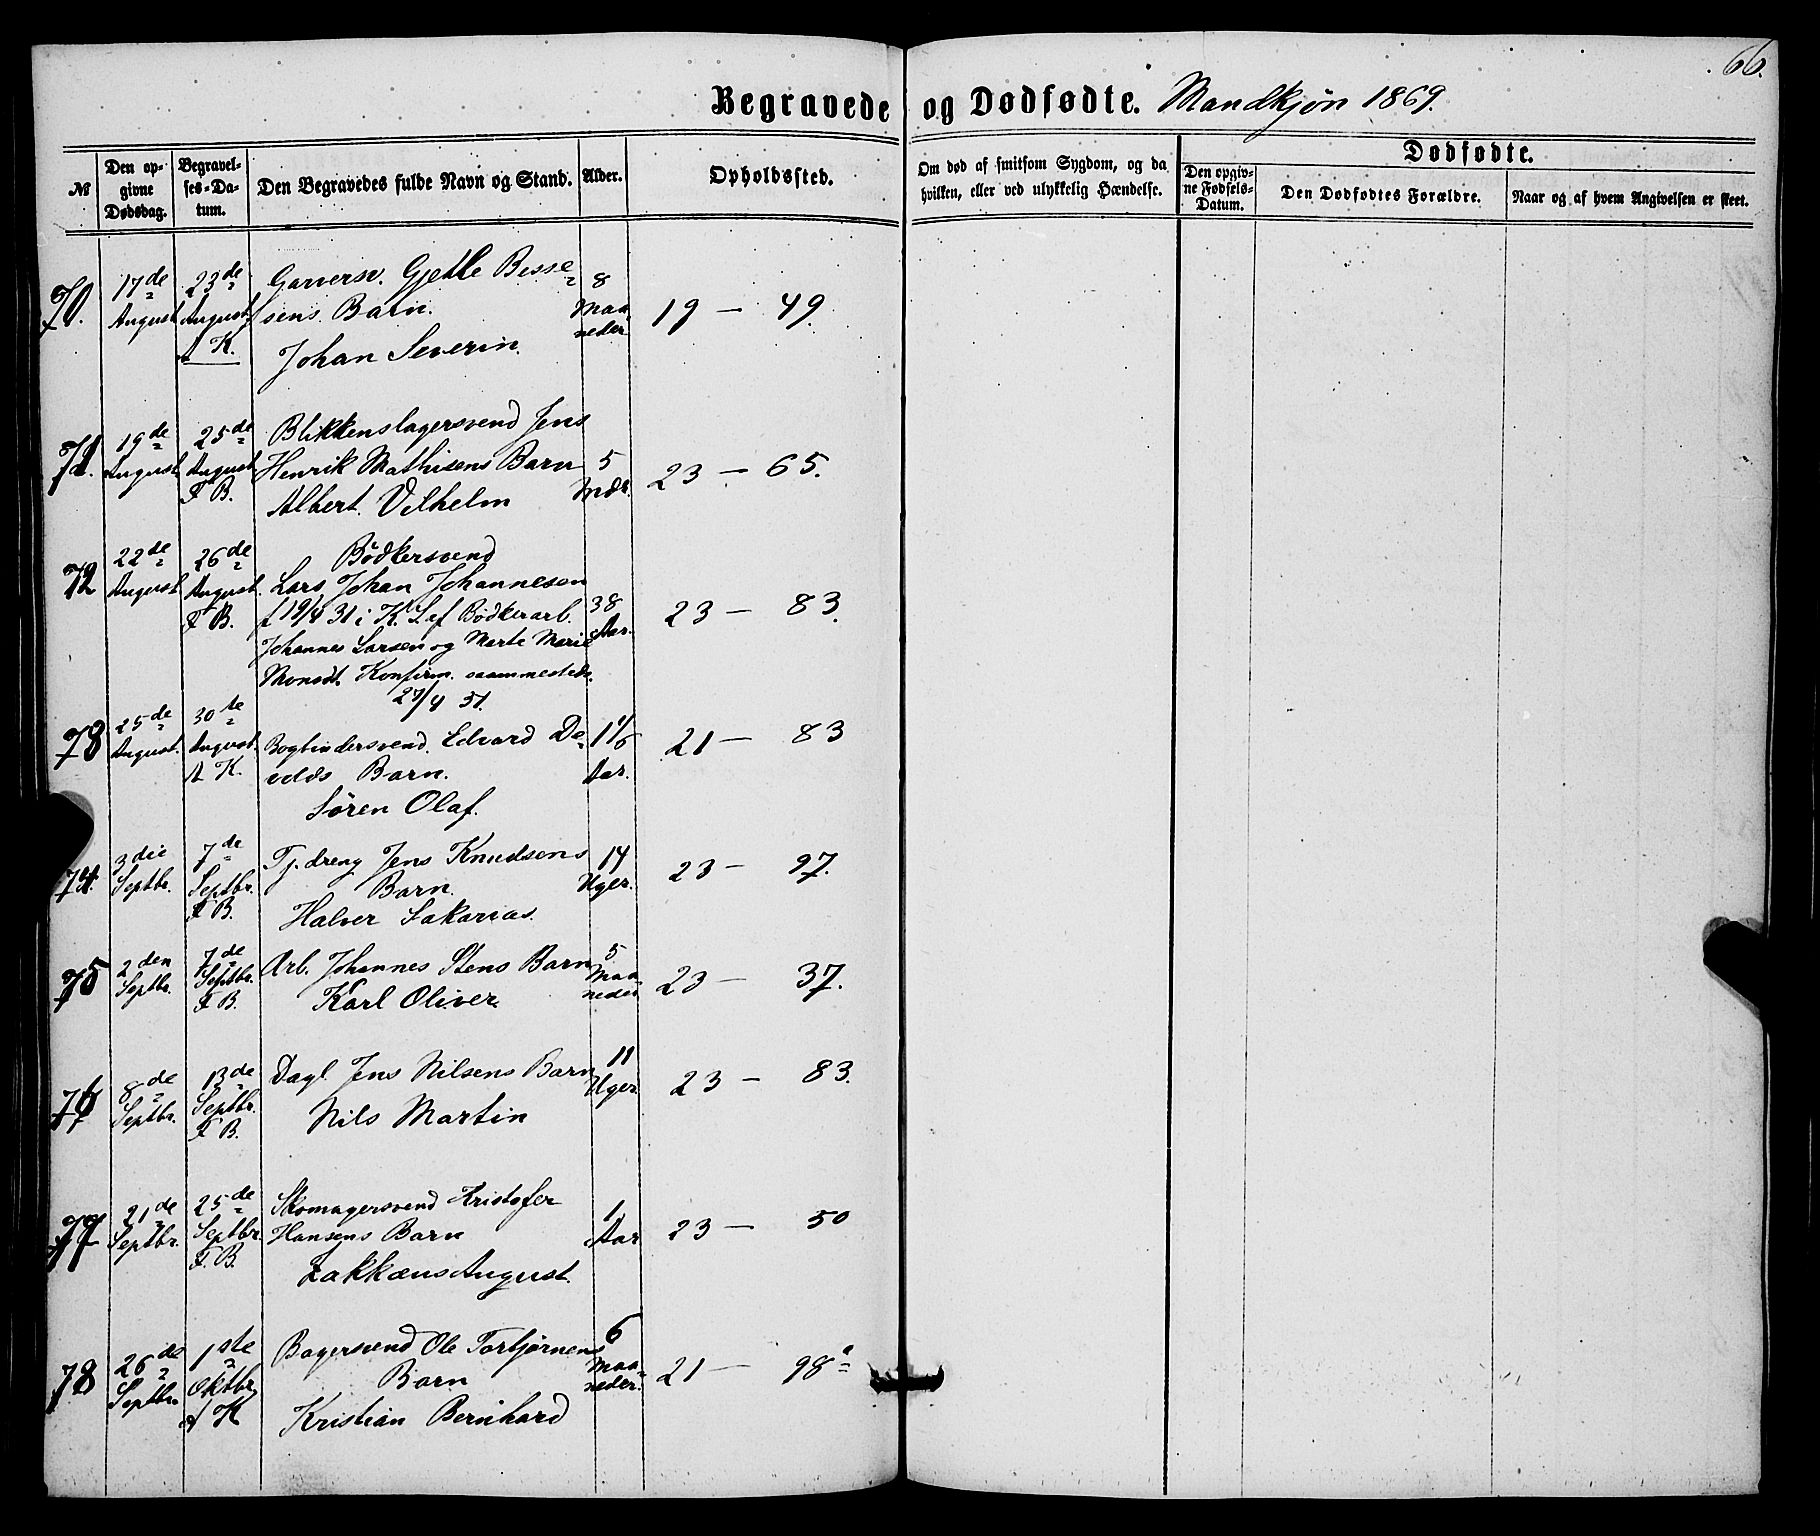 66.
Begravede og Dødfødte. Mandkjøn 1869.
№
Den opgivne Dødsdag.
Begravelses-Datum.
Den Begravedes fulde Navn og Stand.
Alder.
Opholdssted.
Om død af smitsom Sygdom, og da hvilken, eller ved ulykkelig Hændelse.
Dødfødte.
Den opgivne Fødsels-Datum.
Den Dødfødtes Forældre.
Naar og af hvem Angivelsen er skeet.
70. 17de August 23de August A K.
Garversv. Gjetle Besse-
sens Barn.
Johan Severin.
8 Maaneder 19 — 49.
71. 19de August 25de August F B.
Blikkenslagersvend Jens
Henrik Mathisens Barn
Albert Vilhelm
5 Mdr. 23 — 65.
72 22de August 26de August. F B.
Bødkersvend
Lars Johan Johannesen
f 19/4 31 i K. S. ef Bødkerarb.
Johannes Larsen og Marte Marie
Monsdt. Konfirm. saammesteds.
27/4 51.
38 Aar. 23 — 83.
73 25de August. 30te August. A K.
Bogbindersvend. Edvard De-
vdds Barn.
Søren Olaf.
1 1/6 Aar. 21 — 83
74. 3die Septbr. 7de Septbr. F B.
Tj. dreng Jens Knudsens
Barn.
Halver Sakarias.
14 Uger. 23 — 97.
75 2den Septbr. 7de Septbr. F B.
Arb. Johannes Stens Barn
Karl Oliver
5 Maaneder 23 — 37.
76 8de Septbr. 13de Septbr. F B.
Dagl. Jens Nilsens Barn
Nils Martin
11 Uger 23 — 83.
77 21de Septbr. 25de Septbr. F. B.
Skomagersvend Kristofer
Hansens Barn
Zakkæus August.
1 Aar 23 — 50
78 26de Septbr. 1ste Oktbr. A K
Bagersvend Ole Torbjørnens
Barn
Kristian Bernhard
6 Maaneder. 21 — 98a